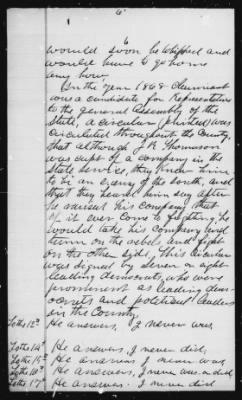 6
would soon be whipped and
would have to go home
any how.
In the year 1868 Claimant
was a candidate for Representative
to the general Assembly of the
State, a circular (printed) was
circulated throughout the County,
that although J. R. Thomason
was capt of a company in the
State service, they knew him
to be an enemy of the south, and
that they heard him say after
he advised his company that
if it ever come to fighting, he
would take his company and
turn on the rebels and fight
on the other side, This circular
was signed by seven or eight
leading democrats, who were
prominent as leading dem-
ocrats and political leaders
in the County.
To the 13th He answers, I never was,
To the 14th He answers, I never did,
To the 15th He answers I never was
To the 16th He answers, I never was or did
To the 17th He answers. I never did